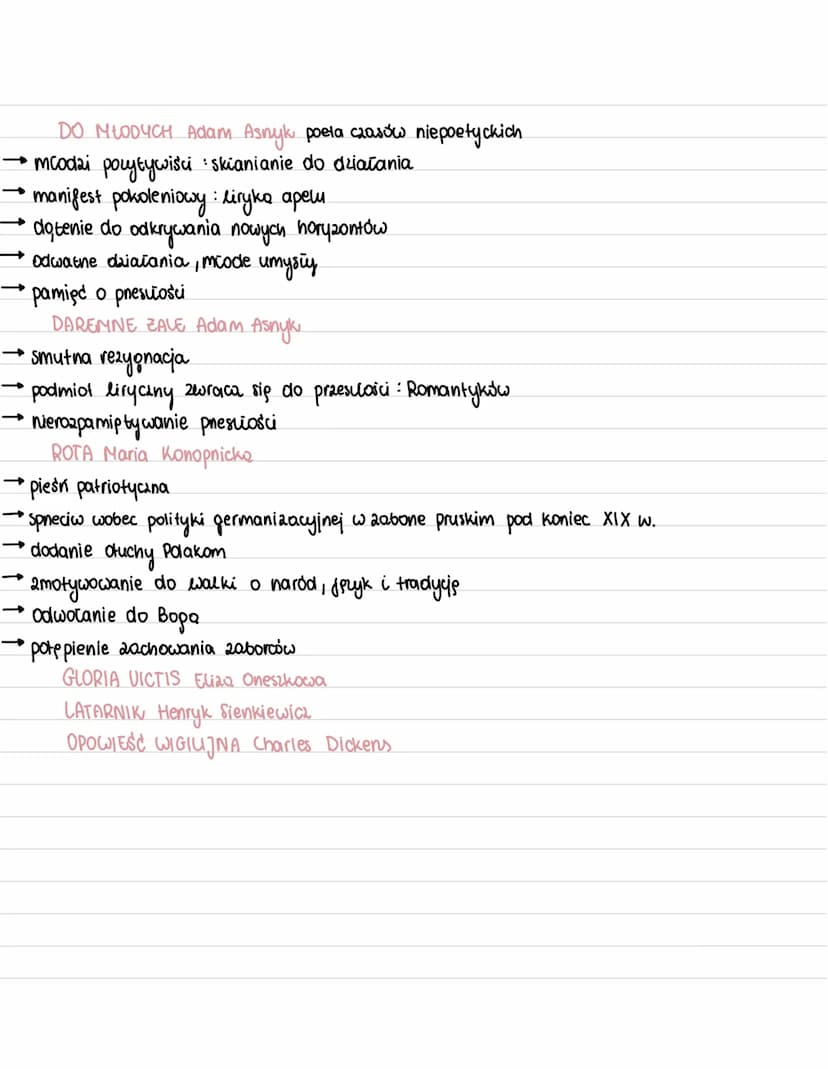 DO MŁODYCH Adam Asnyk poeta czasów niepoetyckich
→ młodzi pozytywiści : skłanianie do działania
→ manifest pokoleniowy : liryka apelu
→ dążenie do odkrywania nowych horyzontów
→ odważne działania, młode umysły
→ pamięć o przeszłości
DAREMNE ŻALE Adam Asnyk
→ smutna rezygnacja
→ podmiot liryczny zwraca się do przeszłości : Romantyków
→ nierozpamiętywanie przeszłości
ROTA Maria Konopnicka
→ pieśń patriotyczna
→ sprzeciw wobec polityki germanizacyjnej w zaborze pruskim pod koniec XIX w.
→ dodanie otuchy Polakom
→ zmotywowanie do walki o naród, język i tradycję
→ odwołanie do Boga
→ potępienie zachowania zaborców
GLORIA VICTIS Eliza Orzeszkowa
LATARNIK Henryk Sienkiewicz
OPOWIEŚĆ WIGILIJNA Charles Dickens